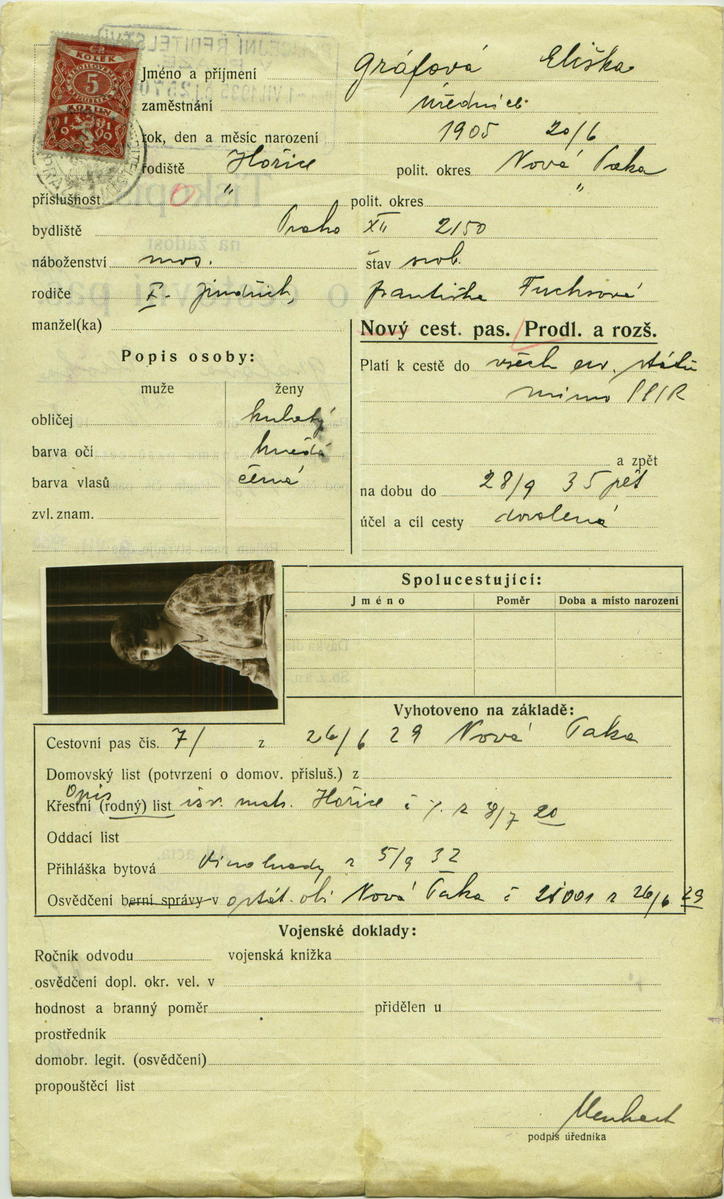 KOLEK
5
Jméno a příjmení Gráfová Eliška
zaměstnání úřednice
rok, den a měsíc narození 1905 20/6
rodiště Hořice polit. okres Nová Paka
příslušnost " polit. okres "
bydliště Praha XII 2150
náboženství mos. stav svob.
rodiče Jindřich, Františka Fuchsová
manžel(ka)
Nový cest. pas. Prodl. a rozš.
Popis osoby:
Platí k cestě do všech ev. států
muže ženy
mimo SSSR
obličej kulatý
barva očí hnědá
a zpět
barva vlasů černá
na dobu do 28/9 35 pět
zvl. znam.
účel a cíl cesty dovolená
Spolucestující:
Jméno Poměr Doba a místo narození
Vyhotoveno na základě:
Cestovní pas čís. 7/ z 26/6 29 Nová Paka
Domovský list (potvrzení o domov. přísluš.) z
Opis
Křestní (rodný) list isr. mat. Hořice č z 8/7 20
Oddací list
Přihláška bytová Vinohrady z 5/9 32
Osvědčení berní správy v Nová Paka č 21001 z 26/6 29
Vojenské doklady:
Ročník odvodu vojenská knížka
osvědčení dopl. okr. vel. v
hodnost a branný poměr přidělen u
prostředník
domobr. legit. (osvědčení)
propouštěcí list
podpis úředníka